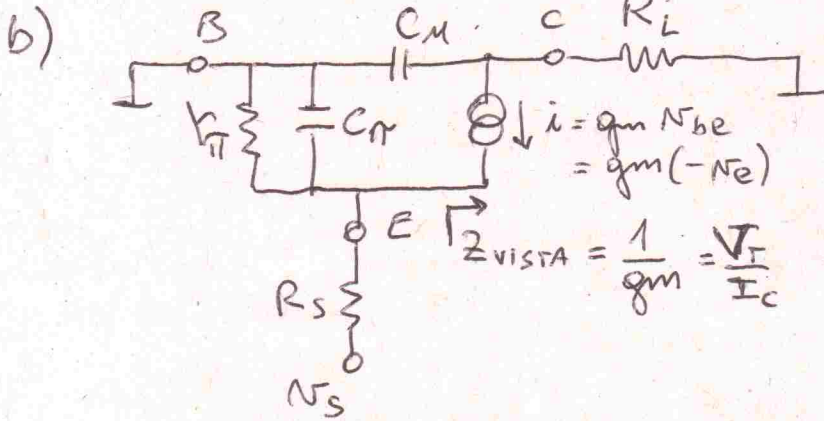 b)
B
Cμ
C
RL
rπ
Cπ
i = gm vbe
= gm(-ve)
E
Zvista = 1/gm = VT/IC
Rs
vs